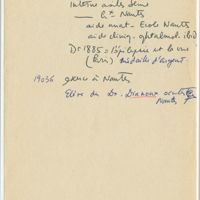 Interne asiles Seine
— hx Nantes
aide anat - Ecole Nantes
aide cliniq. ophtalmol. ibid
Dr 1885 = l'épilepsie et la vue
(Paris) médaille d'argent
19036 exerce à Nantes
Elève du Dr. Dianoux oculiste
Nantes